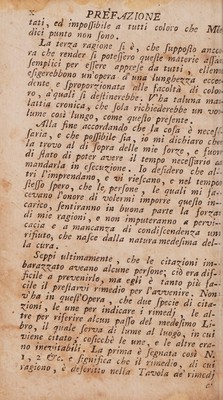 x PREFAZIONE
tati, ed impossibile a tutti coloro che Me-
dici punto non sono.
La terza ragione si è, che supposto anco-
ra che render si potessero queste materie assai
semplici per essere apprese da tutti, elleno
esigerebbono un'opera d'una lunghezza ecce-
dente e sproporzionata alle facoltà di colo-
ro, a' quali si destinerebbe. V'ha taluna ma-
lattia cronica, che sola richiederebbe un vo-
lume così lungo, come questo presente.
Alla fine accordando che la cosa è neces-
saria, e che possibile sia, io mi dichiaro che
la trovo al di sopra delle mie forze, e fuor
di stato di poter avere il tempo necessario a
mandarla in esecuzione. Io desidero che al-
tri l'imprendano, e vi riescano, e nel tempo
stesso spero, che le persone, le quali mi fa-
cevano l'onore di volermi imporre questo in-
carico, sentiranno in buona parte la forza
di mie ragioni, e non imputeranno a pervi-
cacia e a mancanza di condiscendenza un
rifiuto, che nasce dalla natura medesima del-
la cura.
Seppi ultimamente, che le citazioni im-
barazzato aveano alcune persone; ciò era dif-
ficile a prevenirlo, ma egli è tanto più fa-
cile il prestarvi rimedio per l'avvenire. Non
v'ha in quest'Opera, che due specie di cita-
zioni, le une per indicare i rimedj, le al-
tre per riferire alcun passo del medesimo Li-
bro, il quale serva di lume al luogo, in cui
viene citato, cosicchè le une, e le altre era-
no inevitabili. La prima è segnata così N.
1, 2 &c. e significa che il rimedio, di cui
ragiono, è descritto nella Tavola de' rimedj